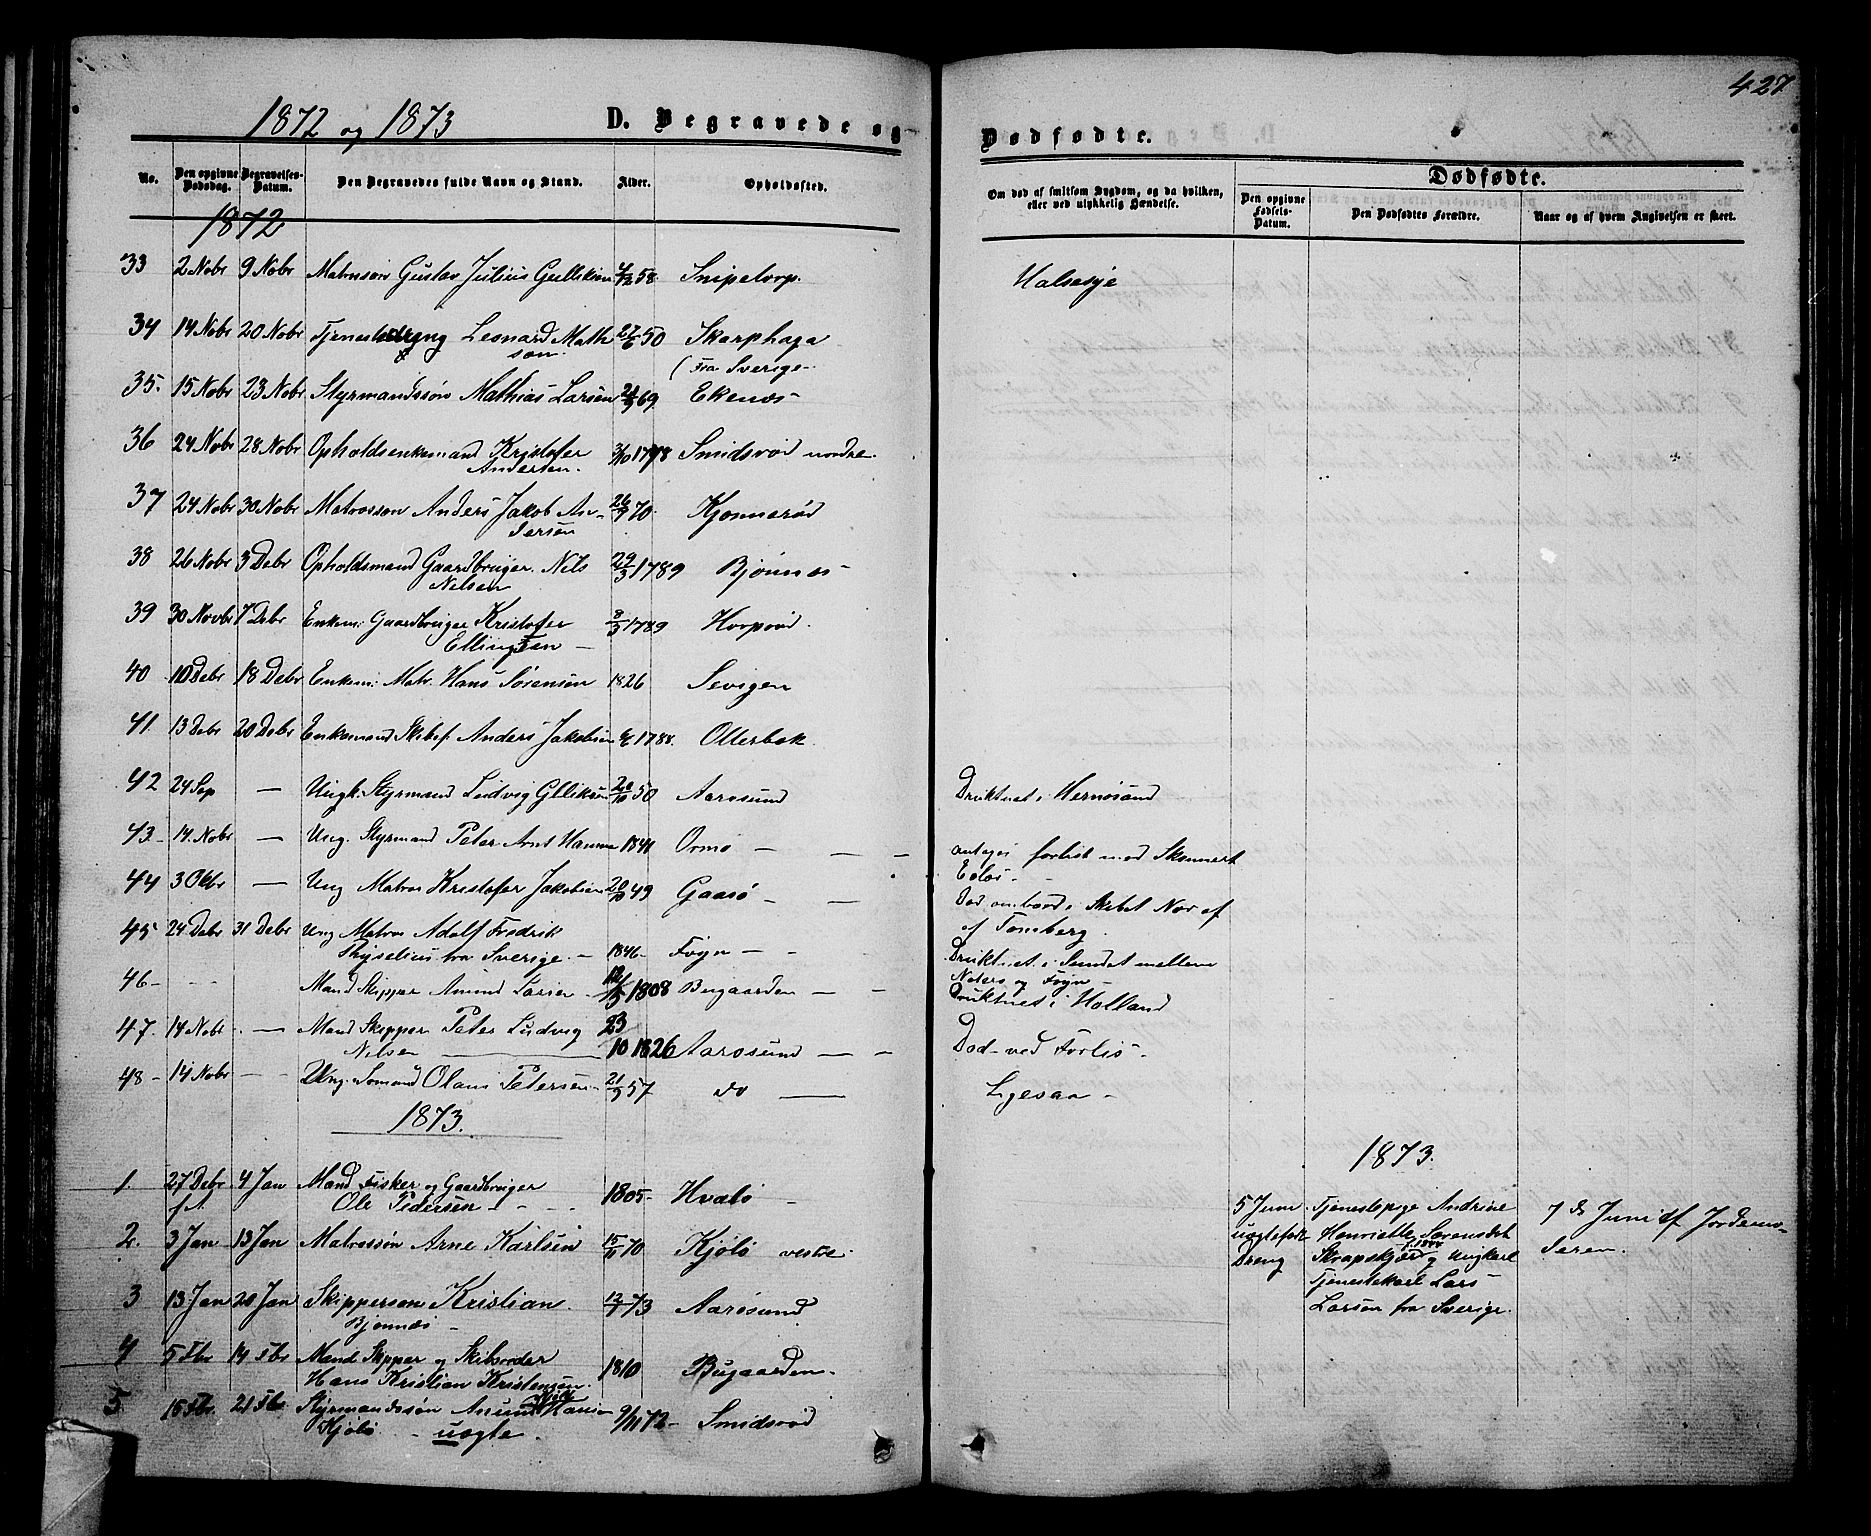 427
1872 og 1873 D. Begravede og Dødfødte.
No. Den opgivne Dødsdag. Begravelses-Datum. Den Begravedes fulde Navn og Stand. Alder. Opholdssted.
Om død af smitsom Sygdom, og da hvilken, eller ved ulykkelig Hændelse.
Dødfødte.
Den opgivne Fødsels-Datum. Den Dødfødtes Forældre. Naar og af hvem Angivelsen er skeet.
1872
33 2 Nobr 9 Nobr Matrosøn Gustav Julius Gulliksen 58 Snipetorp. Halsesyge
34 14 Nobr 20 Nobr Tjenestedreng Leonard Math 27/6 50 Skarphaga
son. (Fra Sverige-
35. 15 Nobr 23 Nobr Styrmandssøn Mathias Larsen 69 Ekenes-
36 24 Nobr 28 Nobr Opholdsenkemand Kristofer Smidsrød nordre.
Andersen.
37 24 Nobr 30 Nobr Matrossøn Anders Jakob An- 70. Kjønnerød
dersen
38 26 Nobr 3 Debr Opholdsmand Gaardbruger Nils 29/3 1789 Bjønnes-
Nelsen
39 30 Novbr 7 Debr Enkem: Gaardbruger Kristofer 8/3 1789
Ellingsen -
40 10 Debr 18 Debr Enkem: Matr. Hans Sørensen 1826 Sevigen
41. 13 Debr 20 Debr Enkemand Skibsf. Anders Jakobsen 1788. Ollerbak.
42 24 Sep — Ungk. Styrmand Ludvig Gulliksen 50 Aarøsund Druknet i Hernøsand
43.- 14. Nobr — Ung. Styrmand Peter 1841 Ormø — — — antages forlist med Skonnert
44 3 Oktbr — Ung Matros Kristofer Jakobsen 20/10 49 Gaasø - — Død ombord i Skibet Nor af
af Tønsberg.
45 24 Debr 31 Debr Ung Matros Adolf Fredrik
fra Sverige. - 1846- Føyn — - - Druknet i Sundet mellem
Nøtterø og Føyn -
46- - - - Mand Skipper Amund Larsen - 1808 Bugaarden — — Druknet i Holland
47. 14 Nobr — Mand Skipper Peter Ludvig 23
Nilsen 10 1826 Aarøsund — - Død- ved Forlis-
48- 14 Nobr - - Ung. Sømand Olaus Petersen- 21/9 57 do — Ligesaa -
1873. 1873.
1. 27 Debr 4 Jan Mand Fisker og Gaardbruger
f.A. Ole Pedersen - - - 1805- Hvalø -
2. 3 Jan 13 Jan Matrossøn Arne Karlsen 70 Kjøbø vestre.
3 13 Jan 20 Jan Skippersøn Kristian 73 Aarøsund.
Bjønnes -
4 5 Fbr 14 Fbr Mand Skipper og Skibsreder 1810 Bugaarden-
Hans Kristian Kristensen.
5 15 Fbr 21 Fbr Styrmandssøn Hans 9/11 72- Smidsrød
Kjøbø - uægte.
5 Juni Tjenestepige Andrine 7 de Juni af Jordemo-
uægtefødt Henriette Sørensdat deren.
Dreng Skrapeskjær f. 1844 og Ungkarl
Tjenestekarl Lars
Larsen fra Sverige.